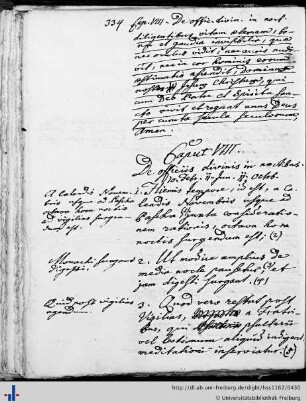 334 Cap. VIII. De offic. divin. in noct.
diligentibus vitam æternam, bona
et gaudia quæ
nec oculus vidit, nec auris audivit,
nec in cor hominis
ascendit, Domino
nostro Jesu Christo, qui
cum Deo Patre et Spiritu Sancto
vivit et regnat unus Deus
per cuncta sæcula sæculorum
Amen.
Caput VIII.
De officiis divinis in noctibus.
10. Febr. 11. Jun. 11. Octob.
A Calendis Novembris
usque ad Pascha
octava hora noctis
ad vigilias surgendum
est.
1. Hiemis tempore, id est, a Calendis
Novembris usque ad
Pascha juxta considerationem
rationis, octava hora
noctis surgendum est; (2)
Monachi surgant
digesti.
2. Ut modice amplius de
media nocte pausetur, et jam
digesti surgant.
Quid post vigilias
agendum.
3. Quod vero restat post
Vigilias, a fratribus,
qui psalterii
vel lectionum aliquid indigent,
meditationi inserviatur.
http://dl.ub.uni-freiburg.de/diglit/hss1162/0430
© Universitätsbibliothek Freiburg